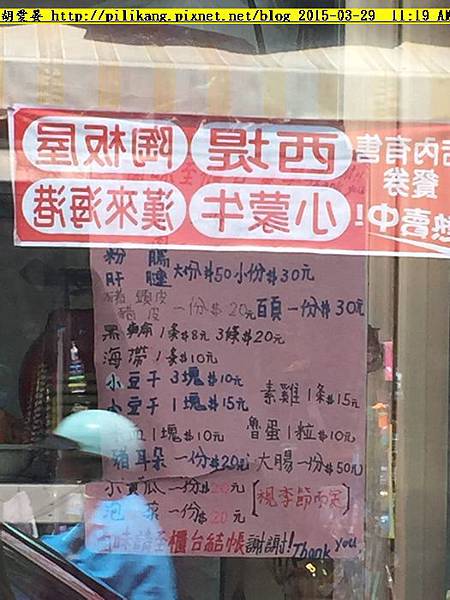 胡雯晏 http://pilikang.pixnet.net/blog 2015-03-29 11:19 AM
陶板屋 西堤 店內有售
漢來海港 小蒙牛 餐券
熱賣中!
粉腸
肝腱 大份$50 小份$30元
豬頭皮
豬皮 一份$20元 百頁一份$30元
黑輪1條$8元 3條$20元
海帶1條$10元
小豆干3塊$10元
素雞1條$15元
大豆干1塊$15元
1塊$10元 魯蛋1粒$10元
豬耳朵一份$20元 大腸一份$50元
小黃瓜一份$20元
[視季節而定]
泡菜一份$20元
滷味請至櫃台結帳謝謝! Thank you